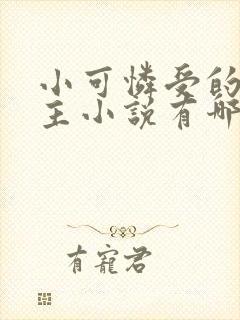 小可憐受的
主小說有哪
有寵君